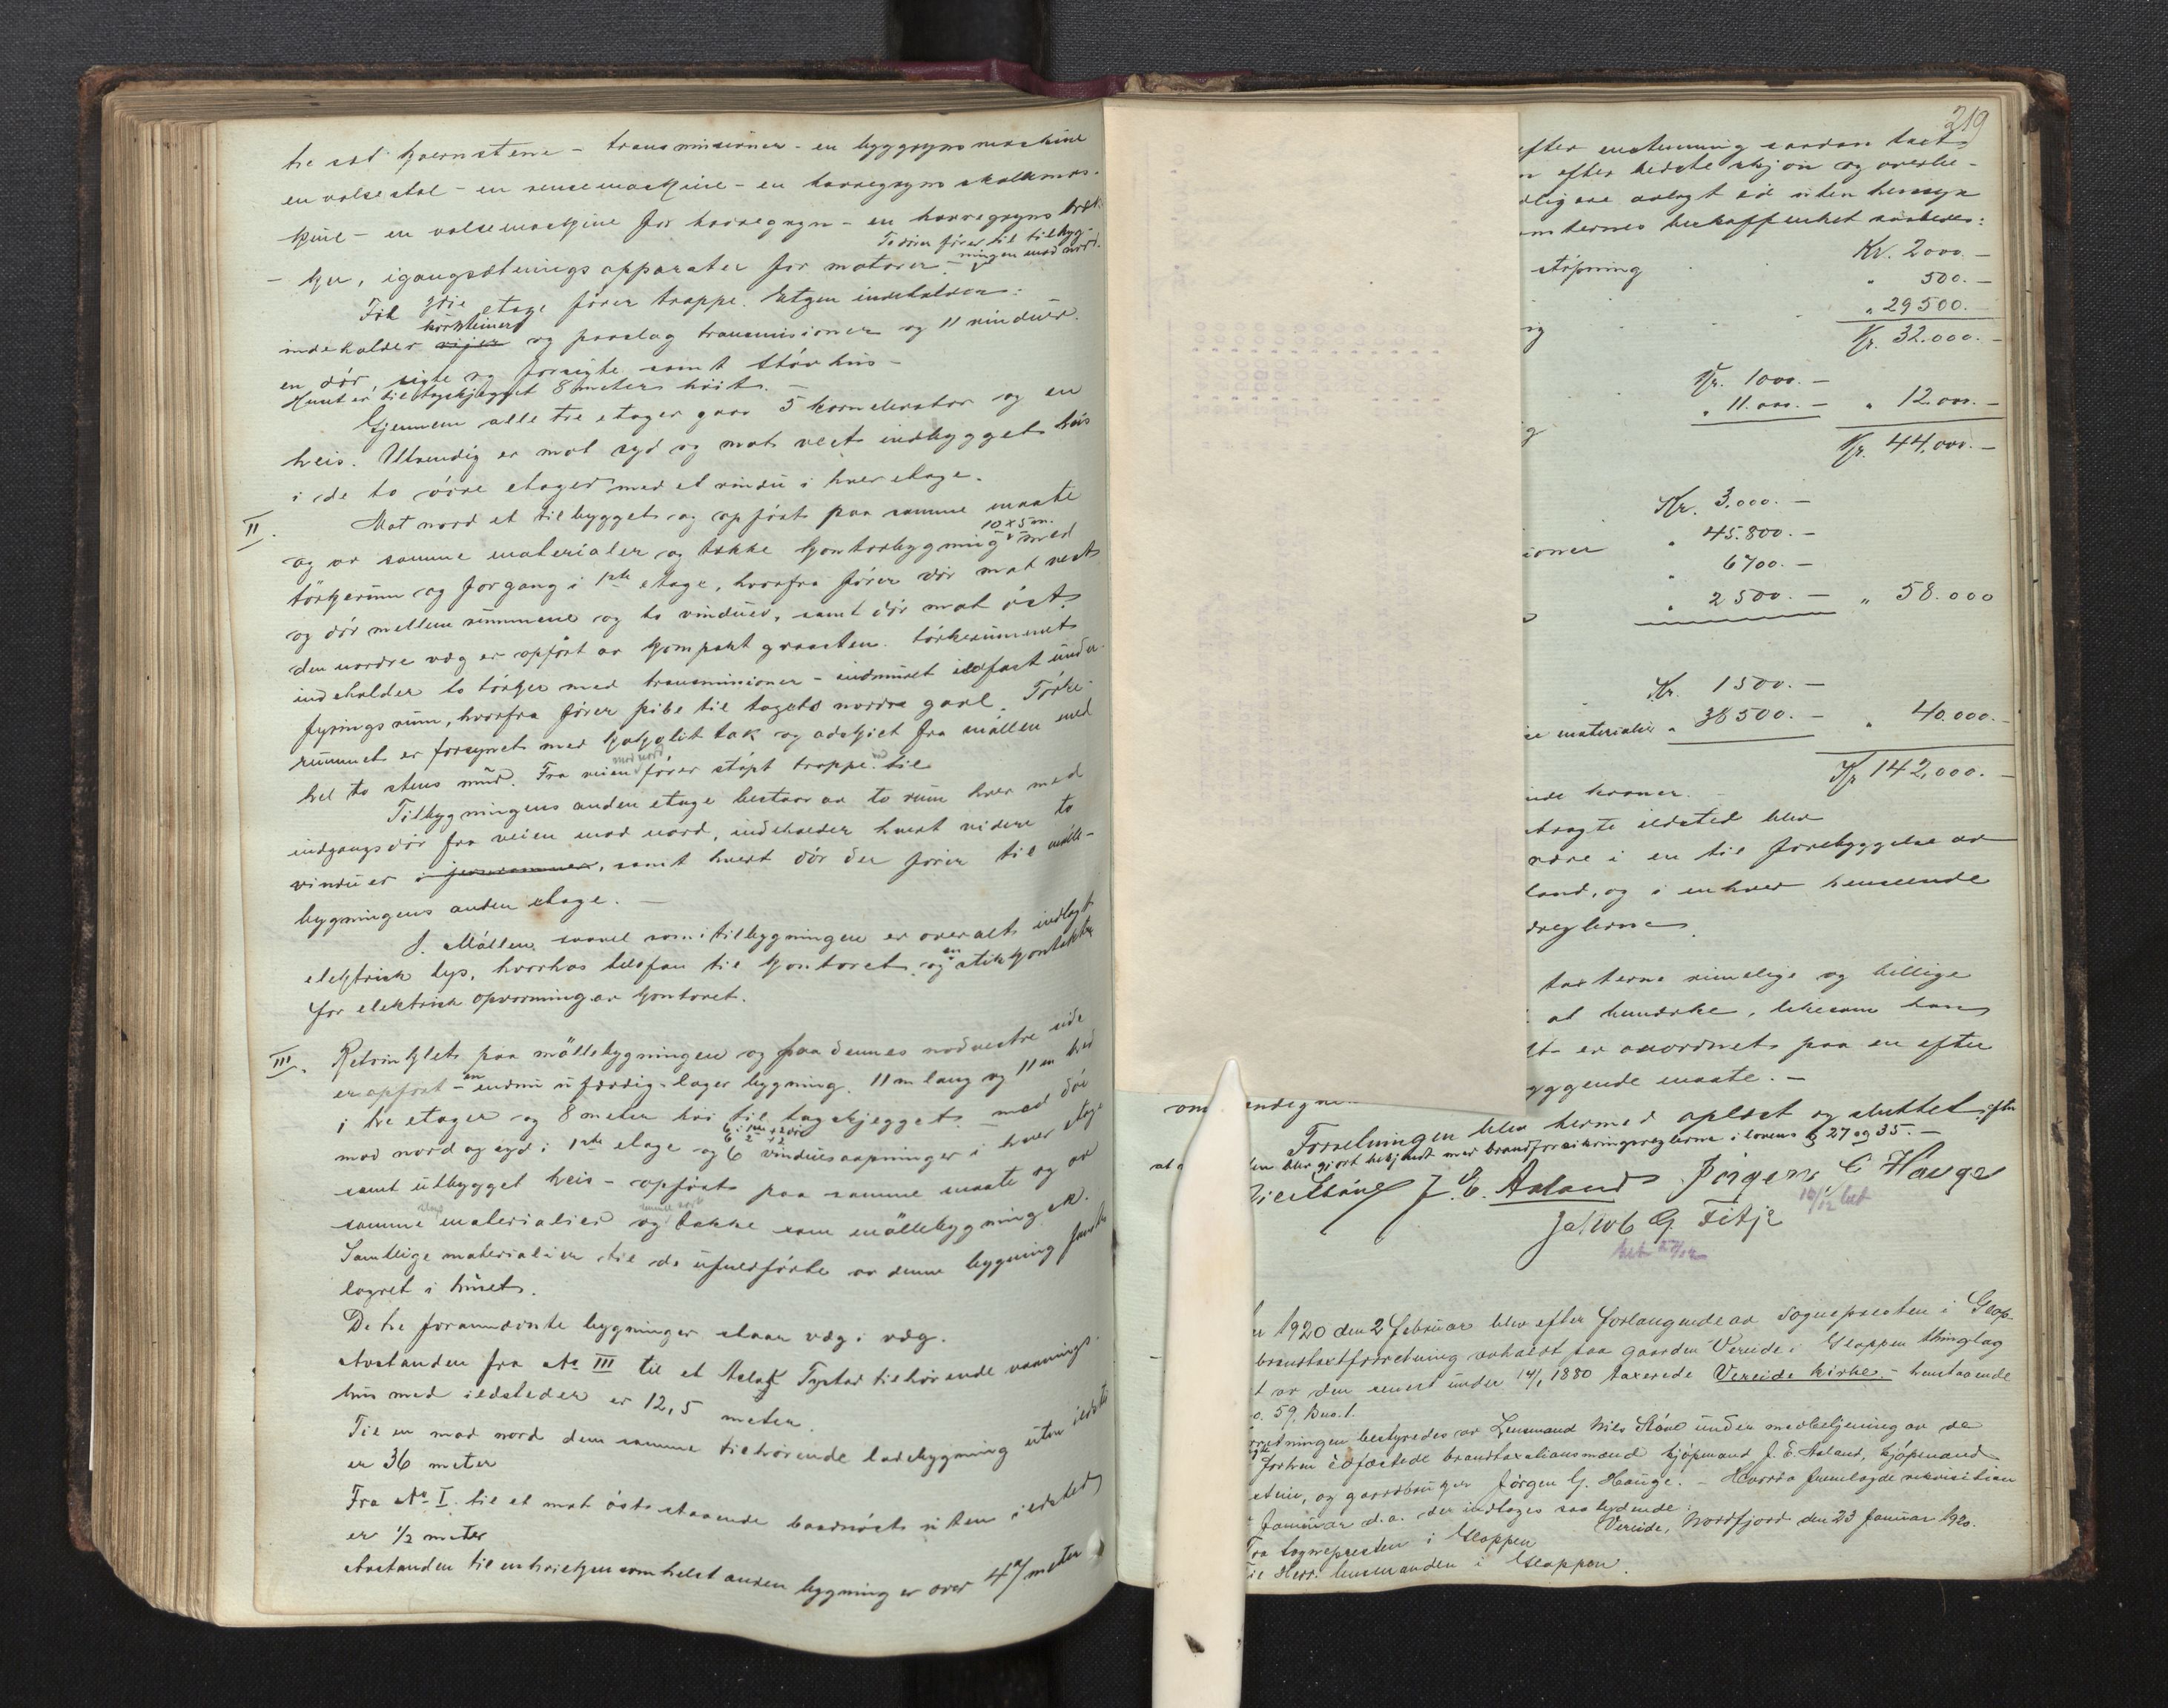 tre set kvernstene - transmissioner - en byggrynsmaskine
en valsestol - en rensemaskine - en havregryns skalkmas-
kine - en valsemaskine for havregryn - en havregryns
To døren fører til tilbyg-
ningen mod nord.
- ker, igangsætnings apparater for motorer -
Til 3die etage fører trappe. Etgen indeholder:
kornbinger
indeholder og paaslag transmisioner og 11 vinduer.
en dør, sigte og forsigte samt støvhus -
Huset er til tagskjegget 8 meter høit. -
Gjennem alle tre etager gaar 5 kornelevator og en
heis. Utvendig er mot syd og mot vest indbygget hus
i de to øvre etager med et vindu i hver etage.
II. Mot nord et tilbygget og opført paa samme maate
10 x 5 m.
og av samme materialer og tække kontorbygning med
tørkerum og forgang i 1ste etage, hvorfra fører dør mot vest
og dør mellem rummene og to vinduer, samt dør mot øst.
den nordre væg er opført av kompakt graasten. tørkerummet
indeholder to tørker med transmissioner - indmuret ildfast under
fyringsrum, hvorfra fører pibe til tagets nordre gavl. Tørke-
rummet er forsynet med tak og adskilt fra møllen med
mod nord
hel to stens mur. Fra veien fører støpt trappe til
Tilbygningens anden etage bestaar av to rum hver med
indgangsdør fra veien mod nord, indeholder hvert videre to
vinduer i jernrammer, samt hvert dør der fører til mølle-
bygningens anden etage. -
I Møllen saavel som i tilbygningen er overalt indlagt
elektrisk lys, hvorhos telefon til kontoret og en stikkontakter
for elektrisk opvarming av kontoret.
III. Retvinklet paa møllebygningen og paa dennes nordvestre side
er opført - en endnu ufærdig lager bygning. 11 m lang og 11 m bred
i tre etager og 8 meter høi til tagskjegget - med dør
mod nord og syd i 1ste etage og 6 vindusaapninger i hver etage
samt utbygget heis - opført paa samme maate og av
samme materialier og tække som møllebygningen.
Samtlige materialier til de ufuldførte av denne bygning
lagret i huset.
De tre forannævnte bygninger staar væg i væg.
Avstanden fra No III til et Aslak Tystad tilhørende vaanings-
hus med ildsteder er 12,5 meter
Til en mod nord dem samme tilhørende ladebygning uten ildsted
er 36 meter
Fra No I. til et mot øst staaende baadnøst uten ildsted
er 1/2 meter
Avstanden til en hvilken som helst anden bygning er over 47 meter
219
efter enstemmig saadan takst
efter bedste skjøn og overbe-
avlagt ed uten hensyn
tomternes beskaffenhet saaledes:
støpning Kr. 2000. -
" 500. -
" 29500. -
Kr. 32.000. -
Kr. 1000. -
" 11.000. - " 12.000. -
Kr. 44,000. -
Kr. 3,000. -
ioner " 45.800. -
" 6700. -
" 2500. - " 58.000
Kr. 1500. -
materialier " 38500. - " 40.000. -
Kr 142,000. -
kroner.
ildsted blev
være i en til forebyggelse av
land, og i enhver henseende
reglerne
taxterne rimelige og billige
at bemerke, likesom han
er anordnet paa en efter
yggende maate. -
Forretningen blev hermed oplæst og sluttet efter
at blev gjort bekjendt med brandforsikringsreglerne i lovens § 27 og 35. -
J. E. Aaland Jørgen G Hauge
Jakob G. Fitje
1920 den 2 februar blev efter forlangende av sognepresten i Glop-
brandtaxtforretning avholdt paa gaarden Vereide i Gloppen thinglag
av den senest under 14/1 1880 taxerede Vereide kirke - henstaaende
o. 59. Bno. 1.
retningen bestyredes av Lensmand Nils Støve under medbetjening av de
forhen edfæstede brandtaxationsmænd kjøpmand J. E. Aaland, kjøpmand
og gaardbruger Jørgen G. Hauge. - Hvorda fremlagdes rekvisition
Januar d.a. der indtages saalydende:
Fra sognepresten i Gloppen Vereide, Nordfjord den 23 Januar 1920.
til Herr lensmanden i Gloppen.